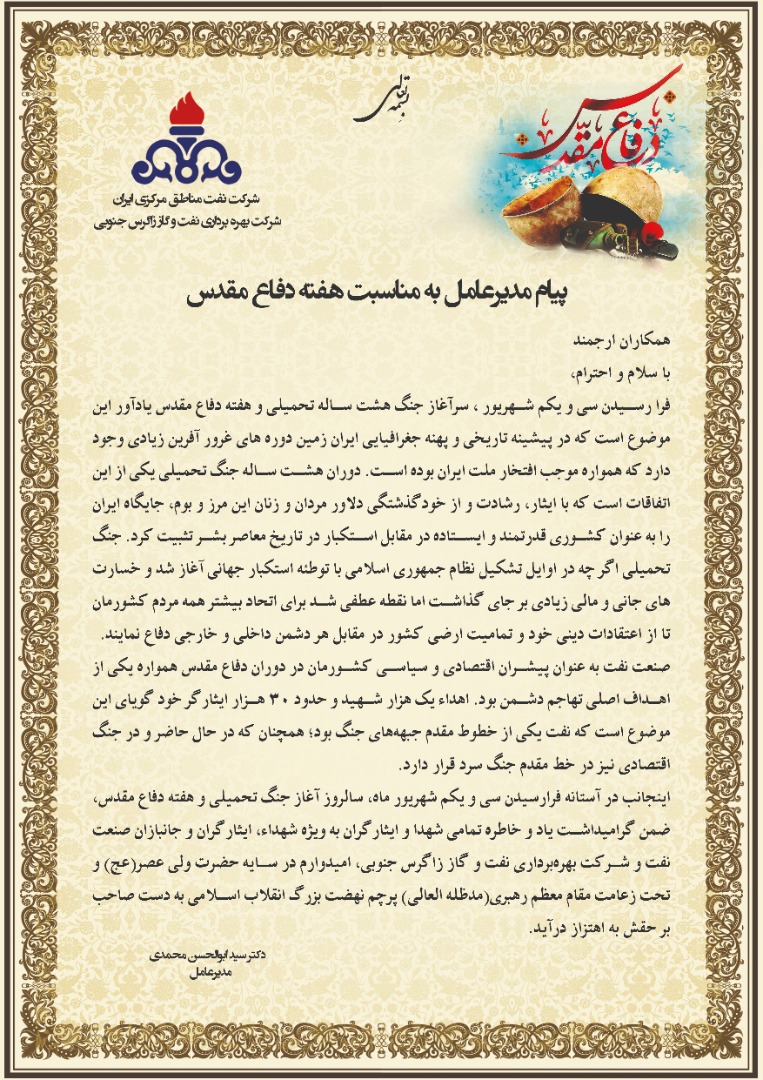 بسمه تعالی
دفاع مقدس
شرکت نفت مناطق مرکزی ایران
شرکت بهره برداری نفت و گاز زاگرس جنوبی
پیام مدیرعامل به مناسبت هفته دفاع مقدس
همکاران ارجمند
با سلام و احترام،
فرا رسیدن سی و یکم شهریور ، سرآغاز جنگ هشت ساله تحمیلی و هفته دفاع مقدس یادآور این
موضوع است که در پیشینه تاریخی و پهنه جغرافیایی ایران زمین دوره های غرور آفرین زیادی وجود
دارد که همواره موجب افتخار ملت ایران بوده است. دوران هشت ساله جنگ تحمیلی یکی از این
اتفاقات است که با ایثار، رشادت و از خودگذشتگی دلاور مردان و زنان این مرز و بوم، جایگاه ایران
را به عنوان کشوری قدرتمند و ایستاده در مقابل استکبار در تاریخ معاصر بشر تثبیت کرد. جنگ
تحمیلی اگر چه در اوایل تشکیل نظام جمهوری اسلامی با توطئه استکبار جهانی آغاز شد و خسارت
های جانی و مالی زیادی بر جای گذاشت اما نقطه عطفی شد برای اتحاد بیشتر همه مردم کشورمان
تا از اعتقادات دینی خود و تمامیت ارضی کشور در مقابل هر دشمن داخلی و خارجی دفاع نمایند.
صنعت نفت به عنوان پیشران اقتصادی و سیاسی کشورمان در دوران دفاع مقدس همواره یکی از
اهداف اصلی تهاجم دشمن بود. اهداء یک هزار شهید و حدود ۳۰ هزار ایثارگر خود گویای این
موضوع است که نفت یکی از خطوط مقدم جبهه‌های جنگ بود؛ همچنان که در حال حاضر و در جنگ
اقتصادی نیز در خط مقدم جنگ سرد قرار دارد.
اینجانب در آستانه فرارسیدن سی و یکم شهریور ماه، سالروز آغاز جنگ تحمیلی و هفته دفاع مقدس،
ضمن گرامیداشت یاد و خاطره تمامی شهدا و ایثارگران به ویژه شهداء، ایثارگران و جانبازان صنعت
نفت و شرکت بهره‌برداری نفت و گاز زاگرس جنوبی، امیدوارم در سایه حضرت ولی عصر(عج) و
تحت زعامت مقام معظم رهبری(مدظله العالی) پرچم نهضت بزرگ انقلاب اسلامی به دست صاحب
بر حقش به اهتزاز درآید.
دکتر سید ابوالحسن محمدی
مدیرعامل